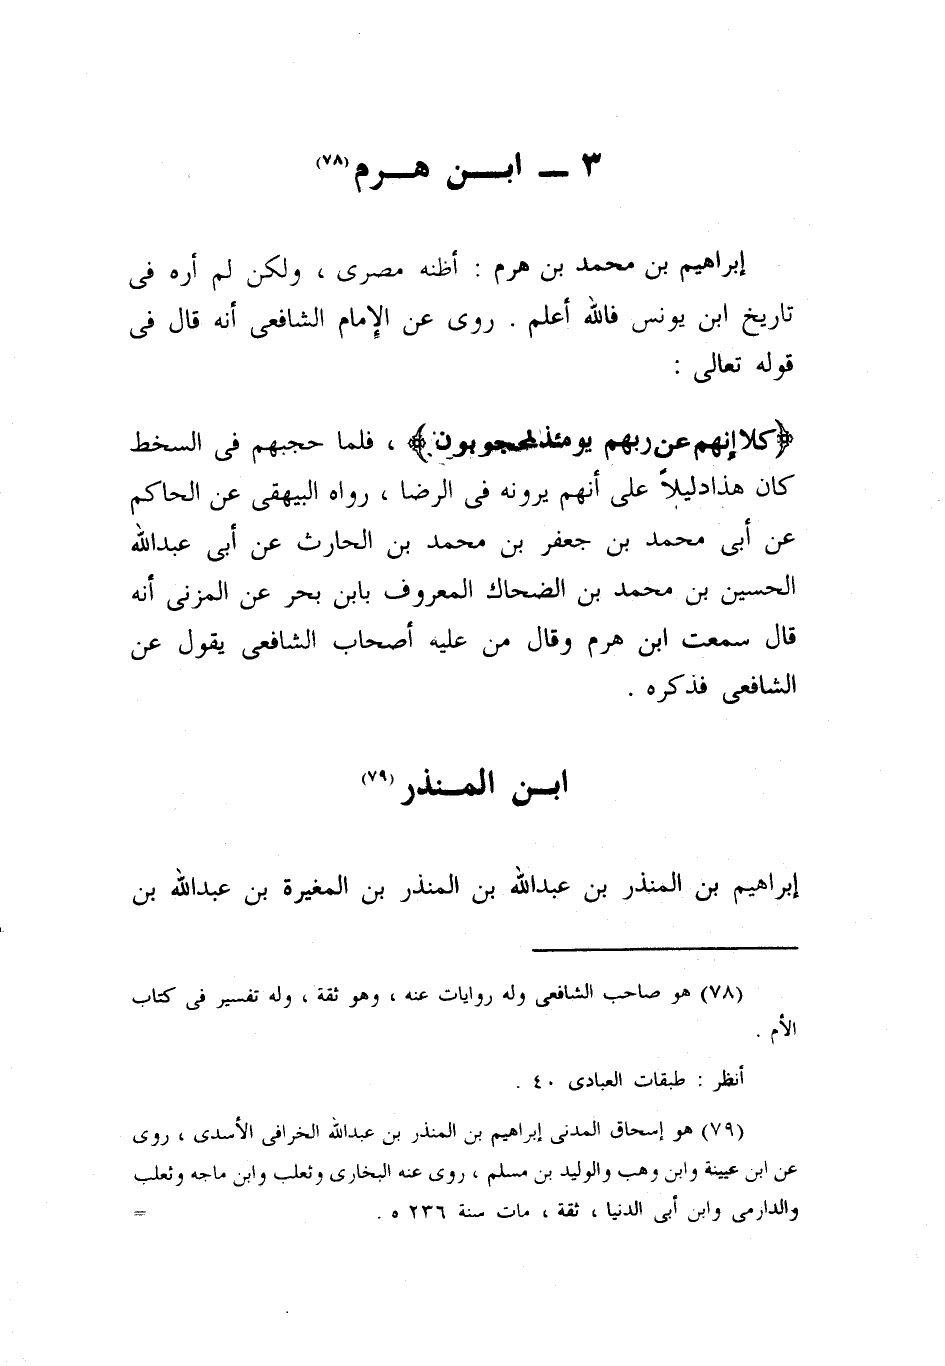 ٣ ـ ابـن هـرم (٧٨)
إبراهيم بن محمد بن هرم : أظنه مصرى ، ولكن لم أره فى
تاريخ ابن يونس فالله أعلم . روى عن الإمام الشافعى أنه قال فى
قوله تعالى :
﴿كلا إنهم عن ربهم يومئذ لمحجوبون﴾ ، فلما حجبهم فى السخط
كان هذادليلاً على أنهم يرونه فى الرضا ، رواه البيهقى عن الحاكم
عن أبى محمد بن جعفر بن محمد بن الحارث عن أبى عبدالله
الحسين بن محمد بن الضحاك المعروف بابن بحر عن المزنى أنه
قال سمعت ابن هرم وقال من عليه أصحاب الشافعى يقول عن
الشافعى فذكره .
ابـن المـنذر (٧٩)
إبراهيم بن المنذر بن عبدالله بن المنذر بن المغيرة بن عبدالله بن
(٧٨) هو صاحب الشافعى وله روايات عنه ، وهو ثقة ، وله تفسير فى كتاب
الأم .
أنظر : طبقات العبادى ٤٠ .
(٧٩) هو إسحاق المدنى إبراهيم بن المنذر بن عبدالله الخرافى الأسدى ، روى
عن ابن عيينة وابن وهب والوليد بن مسلم ، روى عنه البخارى وثعلب وابن ماجه وثعلب
والدارمى وابن أبى الدنيا ، ثقة ، مات سنة ٢٣٦ ه . =